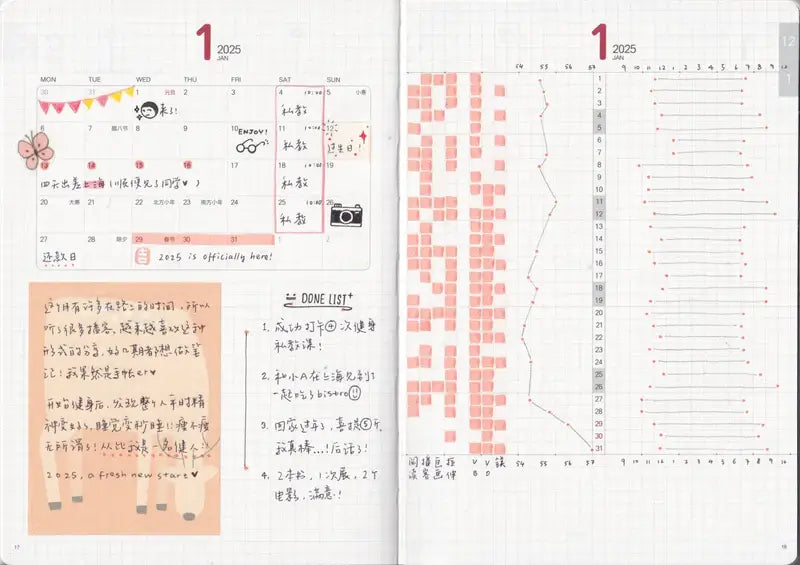 1 2025
JAN
MON TUE WED THU FRI SAT SUN
30 31 1 元旦 2 3 4 10:00 5 小寒
来了! 私教
6 7 腊八节 8 9 10 11 10:00 12
ENJOY! 私教 过生日!
13 14 15 16 17 18 10:00 19
四天出差上海(顺便见了同学♥) 私教
20 大寒 21 22 北方小年 23 南方小年 24 25 10:00 26
私教
27 28 除夕 29 春节 30 31 1 2
还款日 2025 is officially here!
这个月有许多在路上的时间,所以
听了很多播客。越来越喜欢这种
形式的分享,好几期都想做笔
记!我果然是手帐er♥
开始了健身后,发现整个人平时精
神变好了,睡觉变秒睡!!瘦不瘦
无所谓了!从此我是一名健人
2025, a fresh new start♥
DONE LIST+
1. 成功打卡④次健身
私教课!
2. 和小A在上海见到了
一起吃了bistro
3. 回家过年,喜提⑤斤
我真棒...!后话了!
4. 2本书,1次展,2个
电影,满意!
17
1 2025
JAN
12
1
54 55 56 57 9 10 11 12 1 2 3 4 5 6 7 8 9 10
1
2
3
4
5
6
7
8
9
10
11
12
13
14
15
16
17
18
19
20
21
22
23
24
25
26
27
28
29
30
31
54 55 56 57 9 10 11 12 1 2 3 4 5 6 7 8 9 10
阅播画拉 V V 镁
读客画伸 B D
18